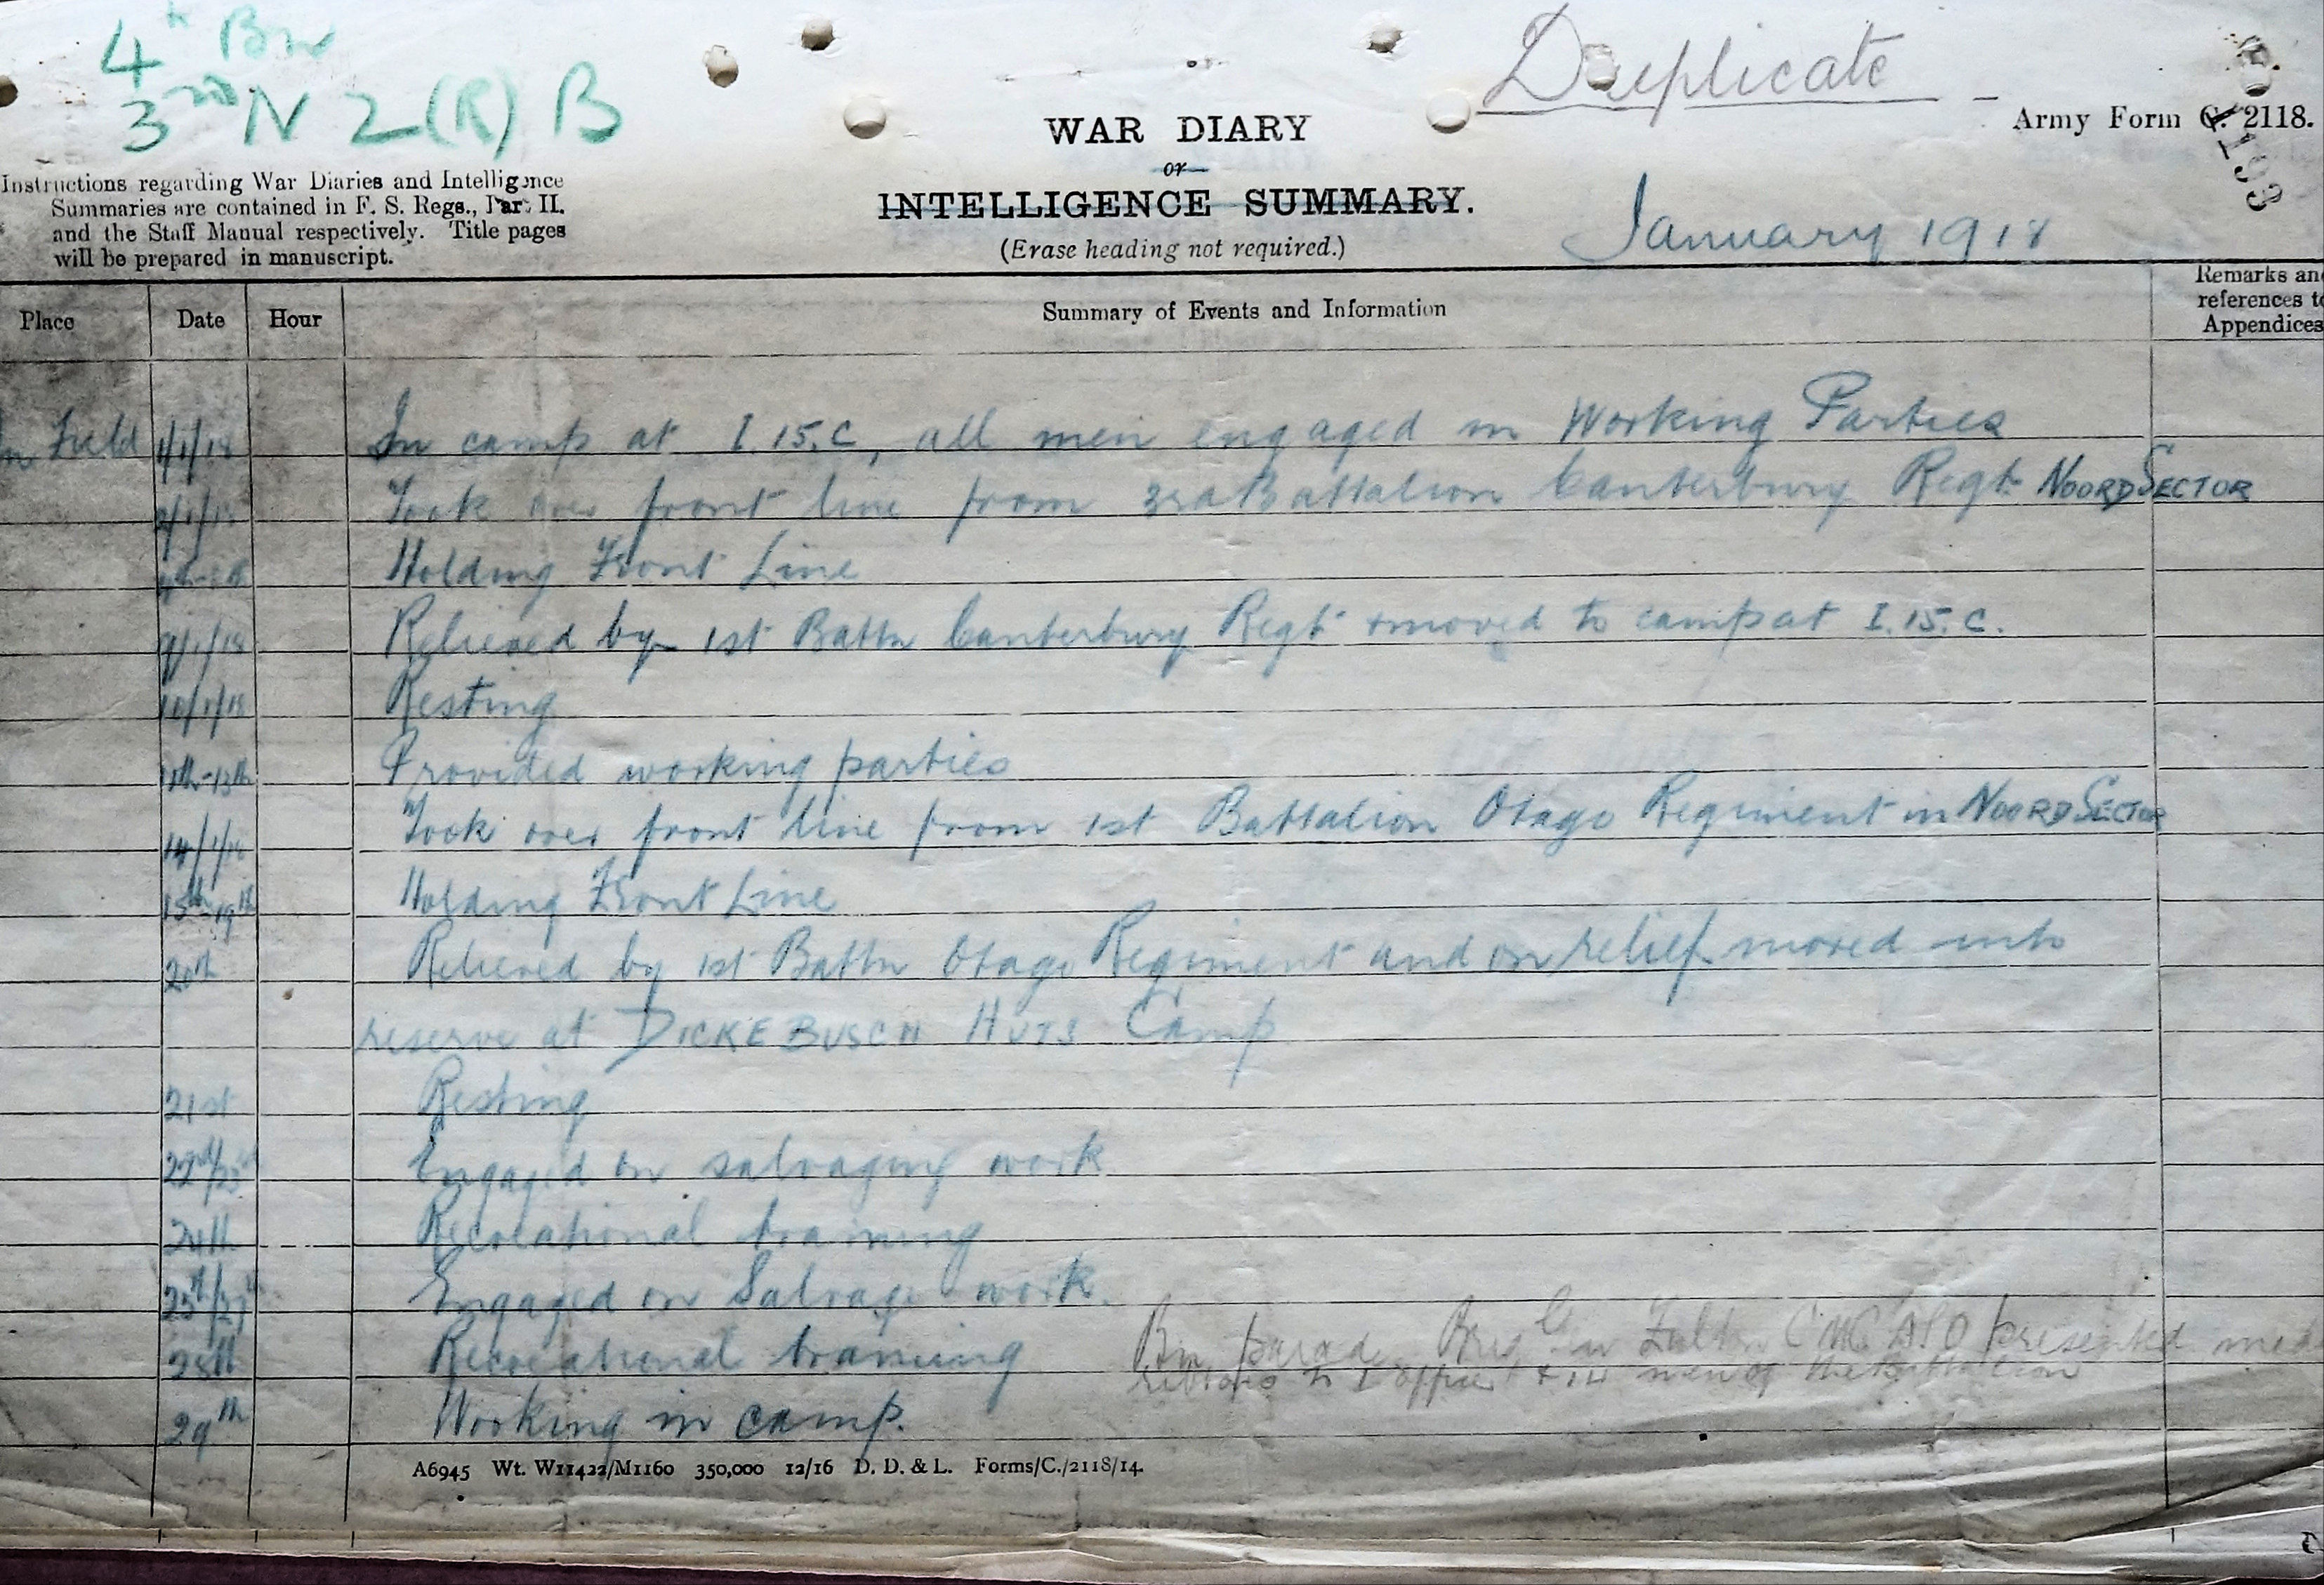 4th Bn
3rd N Z (R) B
Duplicate
Army Form C. 2118.
WAR DIARY
or
INTELLIGENCE SUMMARY.
(Erase heading not required.)
January 1918
Instructions regarding War Diaries and Intelligence
Summaries are contained in F. S. Regs., Part II.
and the Staff Manual respectively. Title pages
will be prepared in manuscript.
Place Date Hour Summary of Events and Information
Remarks and
references to
Appendices
In Field 1/1/18 In camp at I.15.C, all men engaged in Working Parties
Took over front line from 3rd Battalion Canterbury Regt. NOORD SECTOR
Holding Front Line
9/1/18 Relieved by 1st Battn Canterbury Regt. & moved to camp at I.15.C.
10/1/18 Resting
11th-13th Provided working parties
14/1/18 Took over front line from 1st Battalion Otago Regiment in NOORD SECTOR
15th-19th Holding Front Line
20th Relieved by 1st Battn Otago Regiment and on relief moved into
reserve at DICKEBUSCH HUTS Camp
21st Resting
22nd/23rd Engaged on salvaging work
24th Recreational training
25th/27th Engaged on Salvage work.
28th Recreational training Bn parade Brig Gen Fulton CMG DSO presented
ribbons to 1 officer & 14 men of the Battalion
29th Working in camp.
A6945 Wt. W11422/M1160 350,000 12/16 D. D. & L. Forms/C./2118/14.